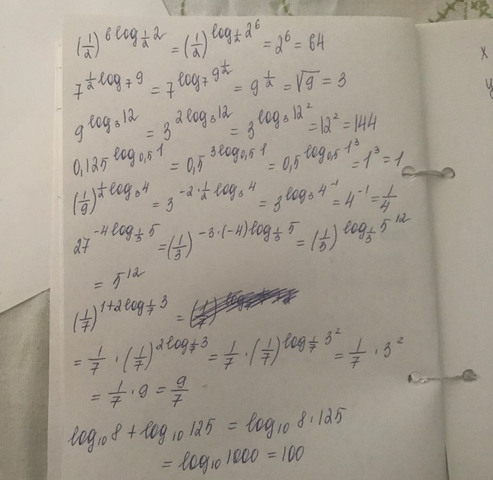 (1/2)^(6 log_(1/2) 2) = (1/2)^(log_(1/2) 2^6) = 2^6 = 64
7^(1/2 log_7 9) = 7^(log_7 9^(1/2)) = 9^(1/2) = √9 = 3
9^(log_3 12) = 3^(2 log_3 12) = 3^(log_3 12^2) = 12^2 = 144
0,125^(log_(0,5) 1) = 0,5^(3 log_(0,5) 1) = 0,5^(log_(0,5) 1^3) = 1^3 = 1
(1/9)^(1/2 log_3 4) = 3^(-2·1/2 log_3 4) = 3^(log_3 4^(-1)) = 4^(-1) = 1/4
27^(-4 log_(1/3) 5) = (1/3)^(-3·(-4) log_(1/3) 5) = (1/3)^(log_(1/3) 5^12)
= 5^12
(1/7)^(1+2 log_(1/7) 3) =
= 1/7 · (1/7)^(2 log_(1/7) 3) = 1/7 · (1/7)^(log_(1/7) 3^2) = 1/7 · 3^2
= 1/7 · 9 = 9/7
log_10 8 + log_10 125 = log_10 8·125
= log_10 1000 = 100
x